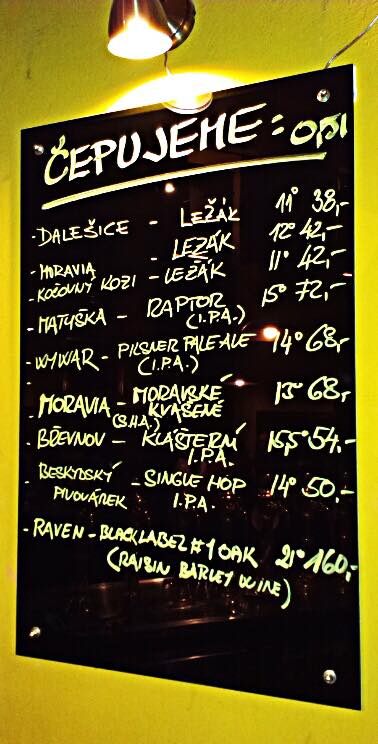 ČEPUJEME: 0,5l
- DALEŠICE - LEŽÁK 11° 38,-
- MORAVIA LEŽÁK 12° 42,-
- KOŽOVNÝ KOZI - LEŽÁK 11° 42,-
- MATUŠKA - RAPTOR 15° 72,-
(I.P.A.)
- WYWAR - PILSNER PALE ALE 14° 68,-
(I.P.A.)
- MORAVIA - MORAVSKÉ 13° 68,-
(S.H.A.) KVAŠENÉ
- BŘEVNOV - KLÁŠTERNÍ 15,5° 54.-
I.P.A.
- BESKYDSKÝ - SINGLE HOP 14° 50.-
PIVOVÁREK I.P.A.
- RAVEN - BLACK LABEL #1 OAK 21° 160,-
(RAISIN BARLEY WINE)